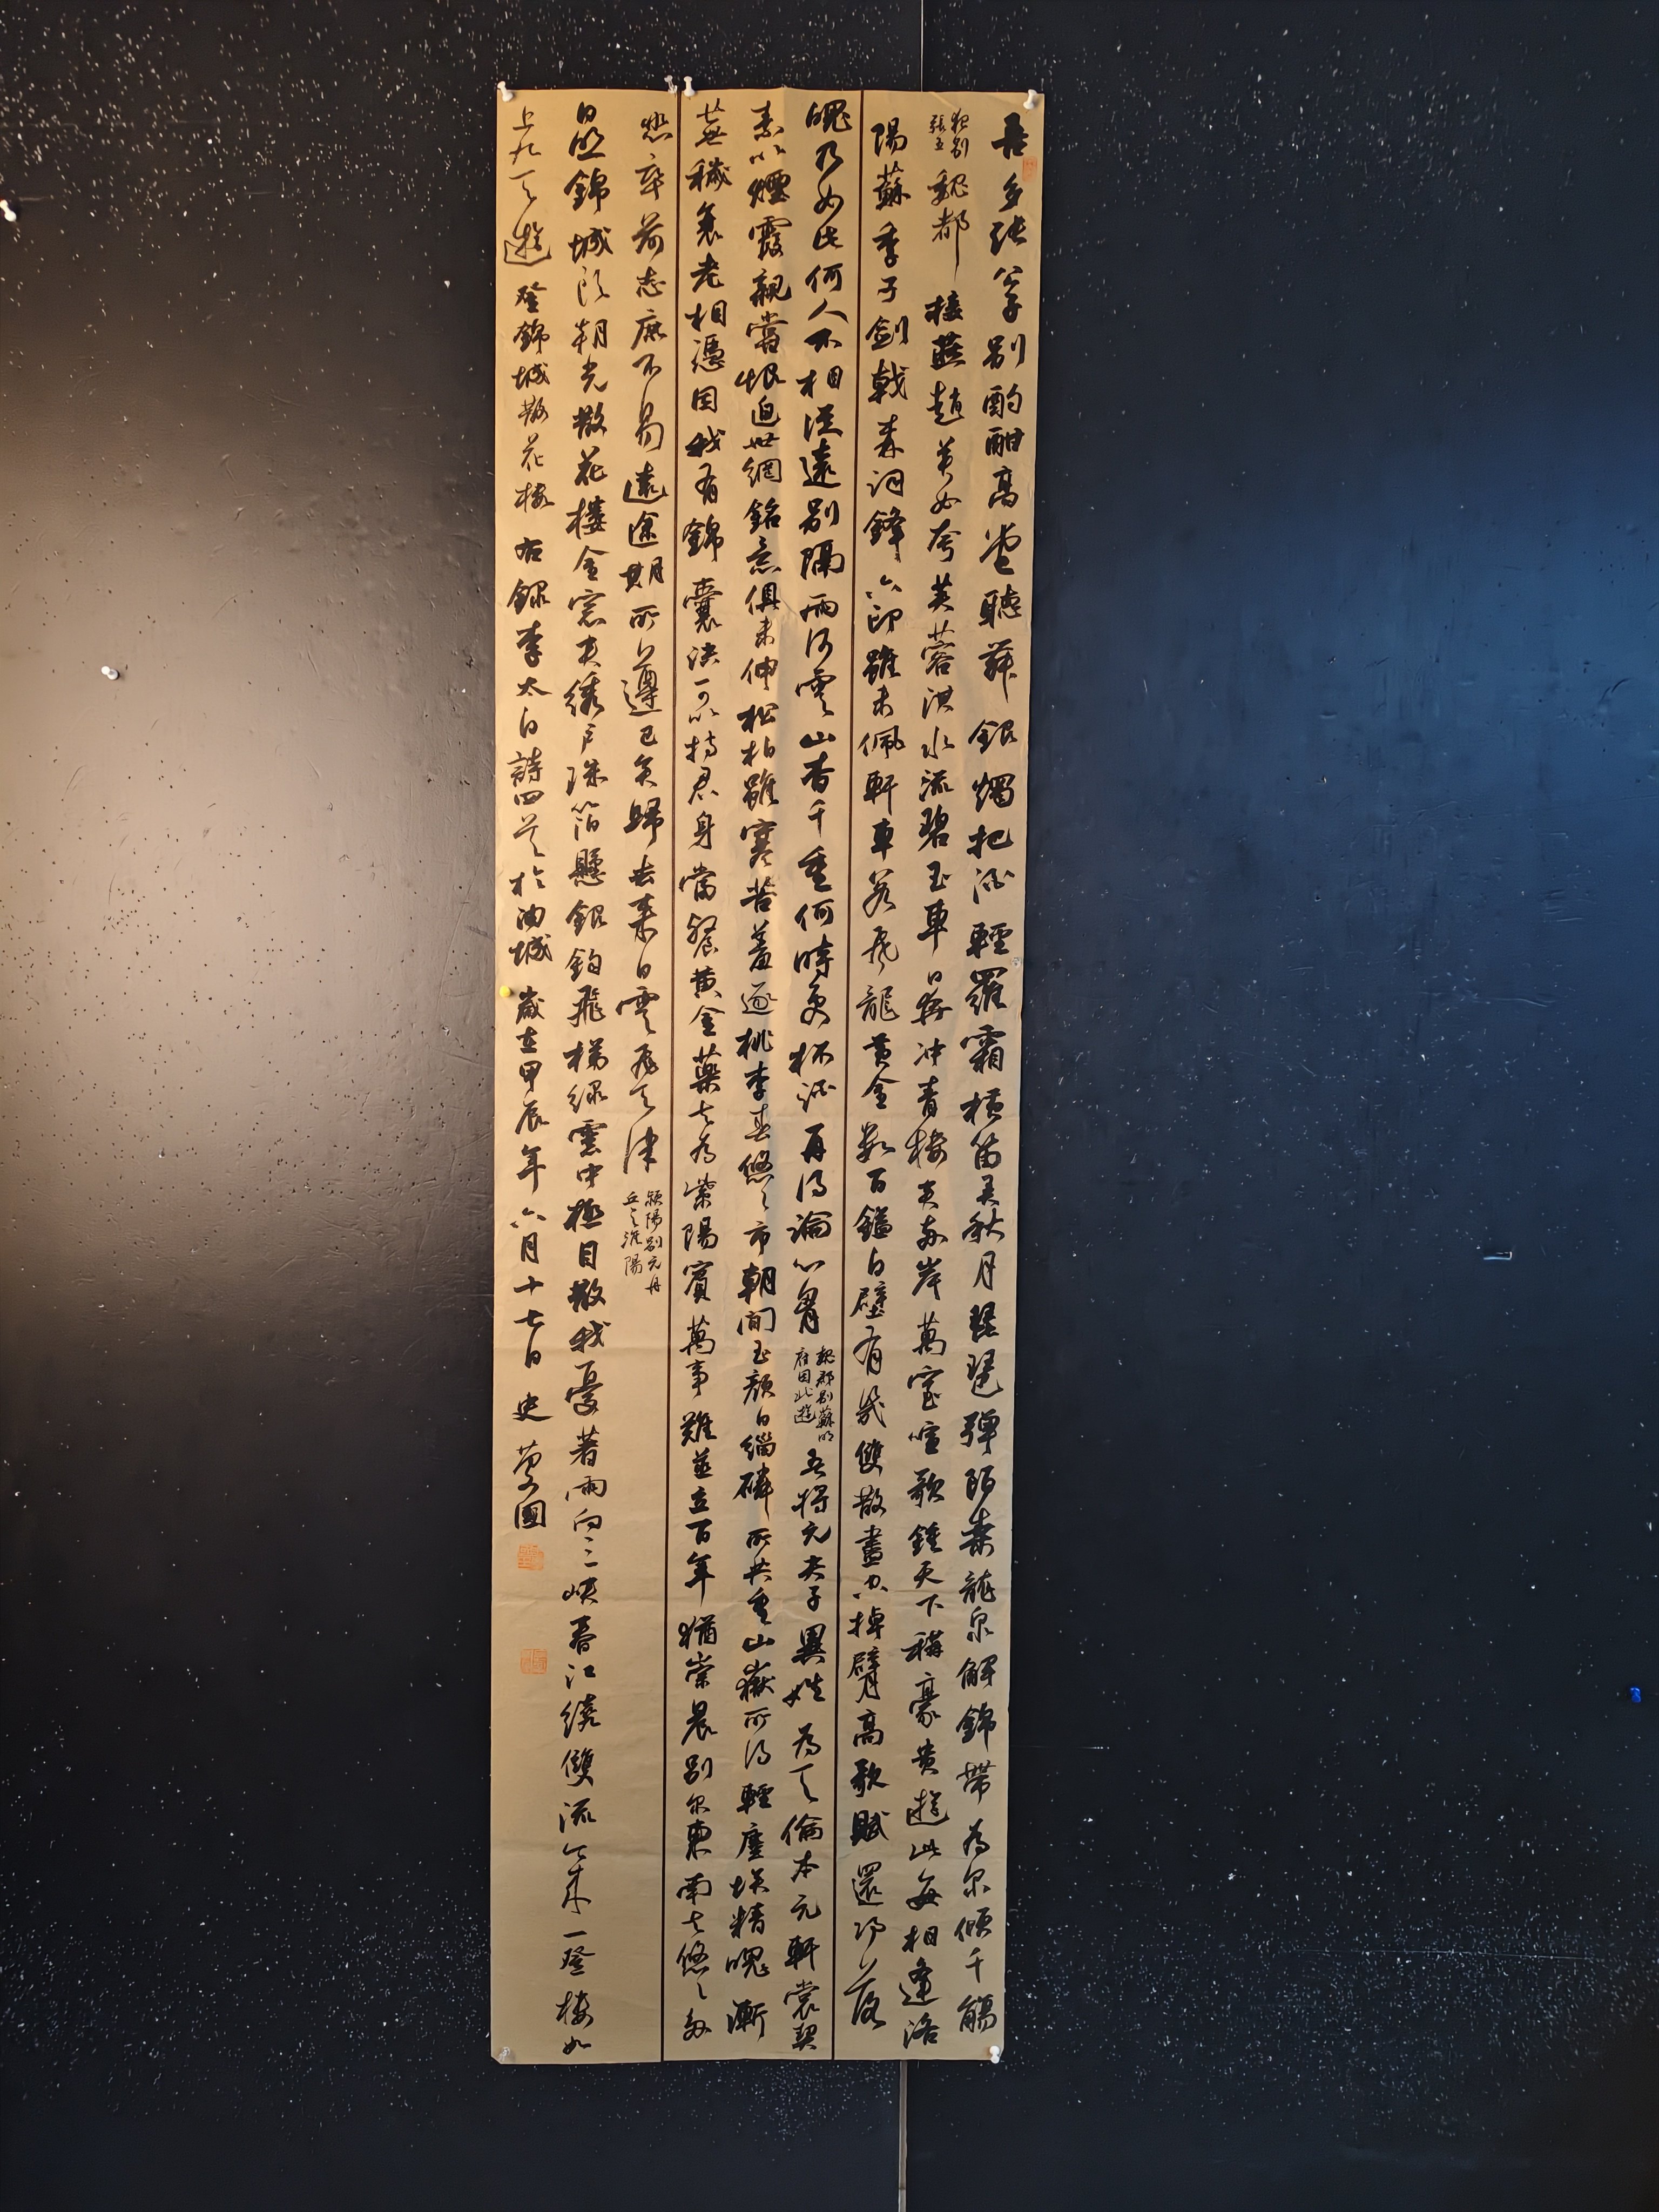 吾多張公子別酌酣高堂聽舞銀燭把酒輕羅霜橫笛弄秋月琵琶彈陌桑龍泉解錦帶為爾傾千觴
夜別張五
魏都接燕趙美女夸芙蓉淇水流碧玉車日奔冲青樓夾兩岸萬室喧歌鍾天下稱豪貴遊此每相逢洛
陽蘇季子劍戟森詞鋒六印雖未佩軒車若飛龍黃金數百鎰白璧有幾雙散盡空掉臂高歌賦還邛落
魄乃如此何人不相從遠別隔兩河雲山杳千重何時更杯酒再得論心胸
魏郡別蘇明府因北遊
吾將元夫子異姓為天倫本无軒裳契
素以煙霞親嘗恨迫世網銘意俱未伸松柏雖寒苦羞逐桃李春悠々市朝間玉顏日緇磷所共重山嶽所得輕塵埃精魄漸
蕪穢衰老相憑因我有錦囊決可以持君身當餐黃金藥去為紫陽賓萬事難並立百年猶崇晨別尔東南去悠々多
悲辛前志庶不易遠途期所遵已矣歸去來白雲飛天津
潁陽別元丹丘之淮陽
日照錦城頭朝光散花樓金窗夾繡戶珠箔懸銀鉤飛梯綠雲中極目散我憂暮雨向三峽春江繞雙流今來一登樓如
上九天遊 登錦城散花樓 右錄李太白詩四首於油城 歲在甲辰年六月十七日 史國